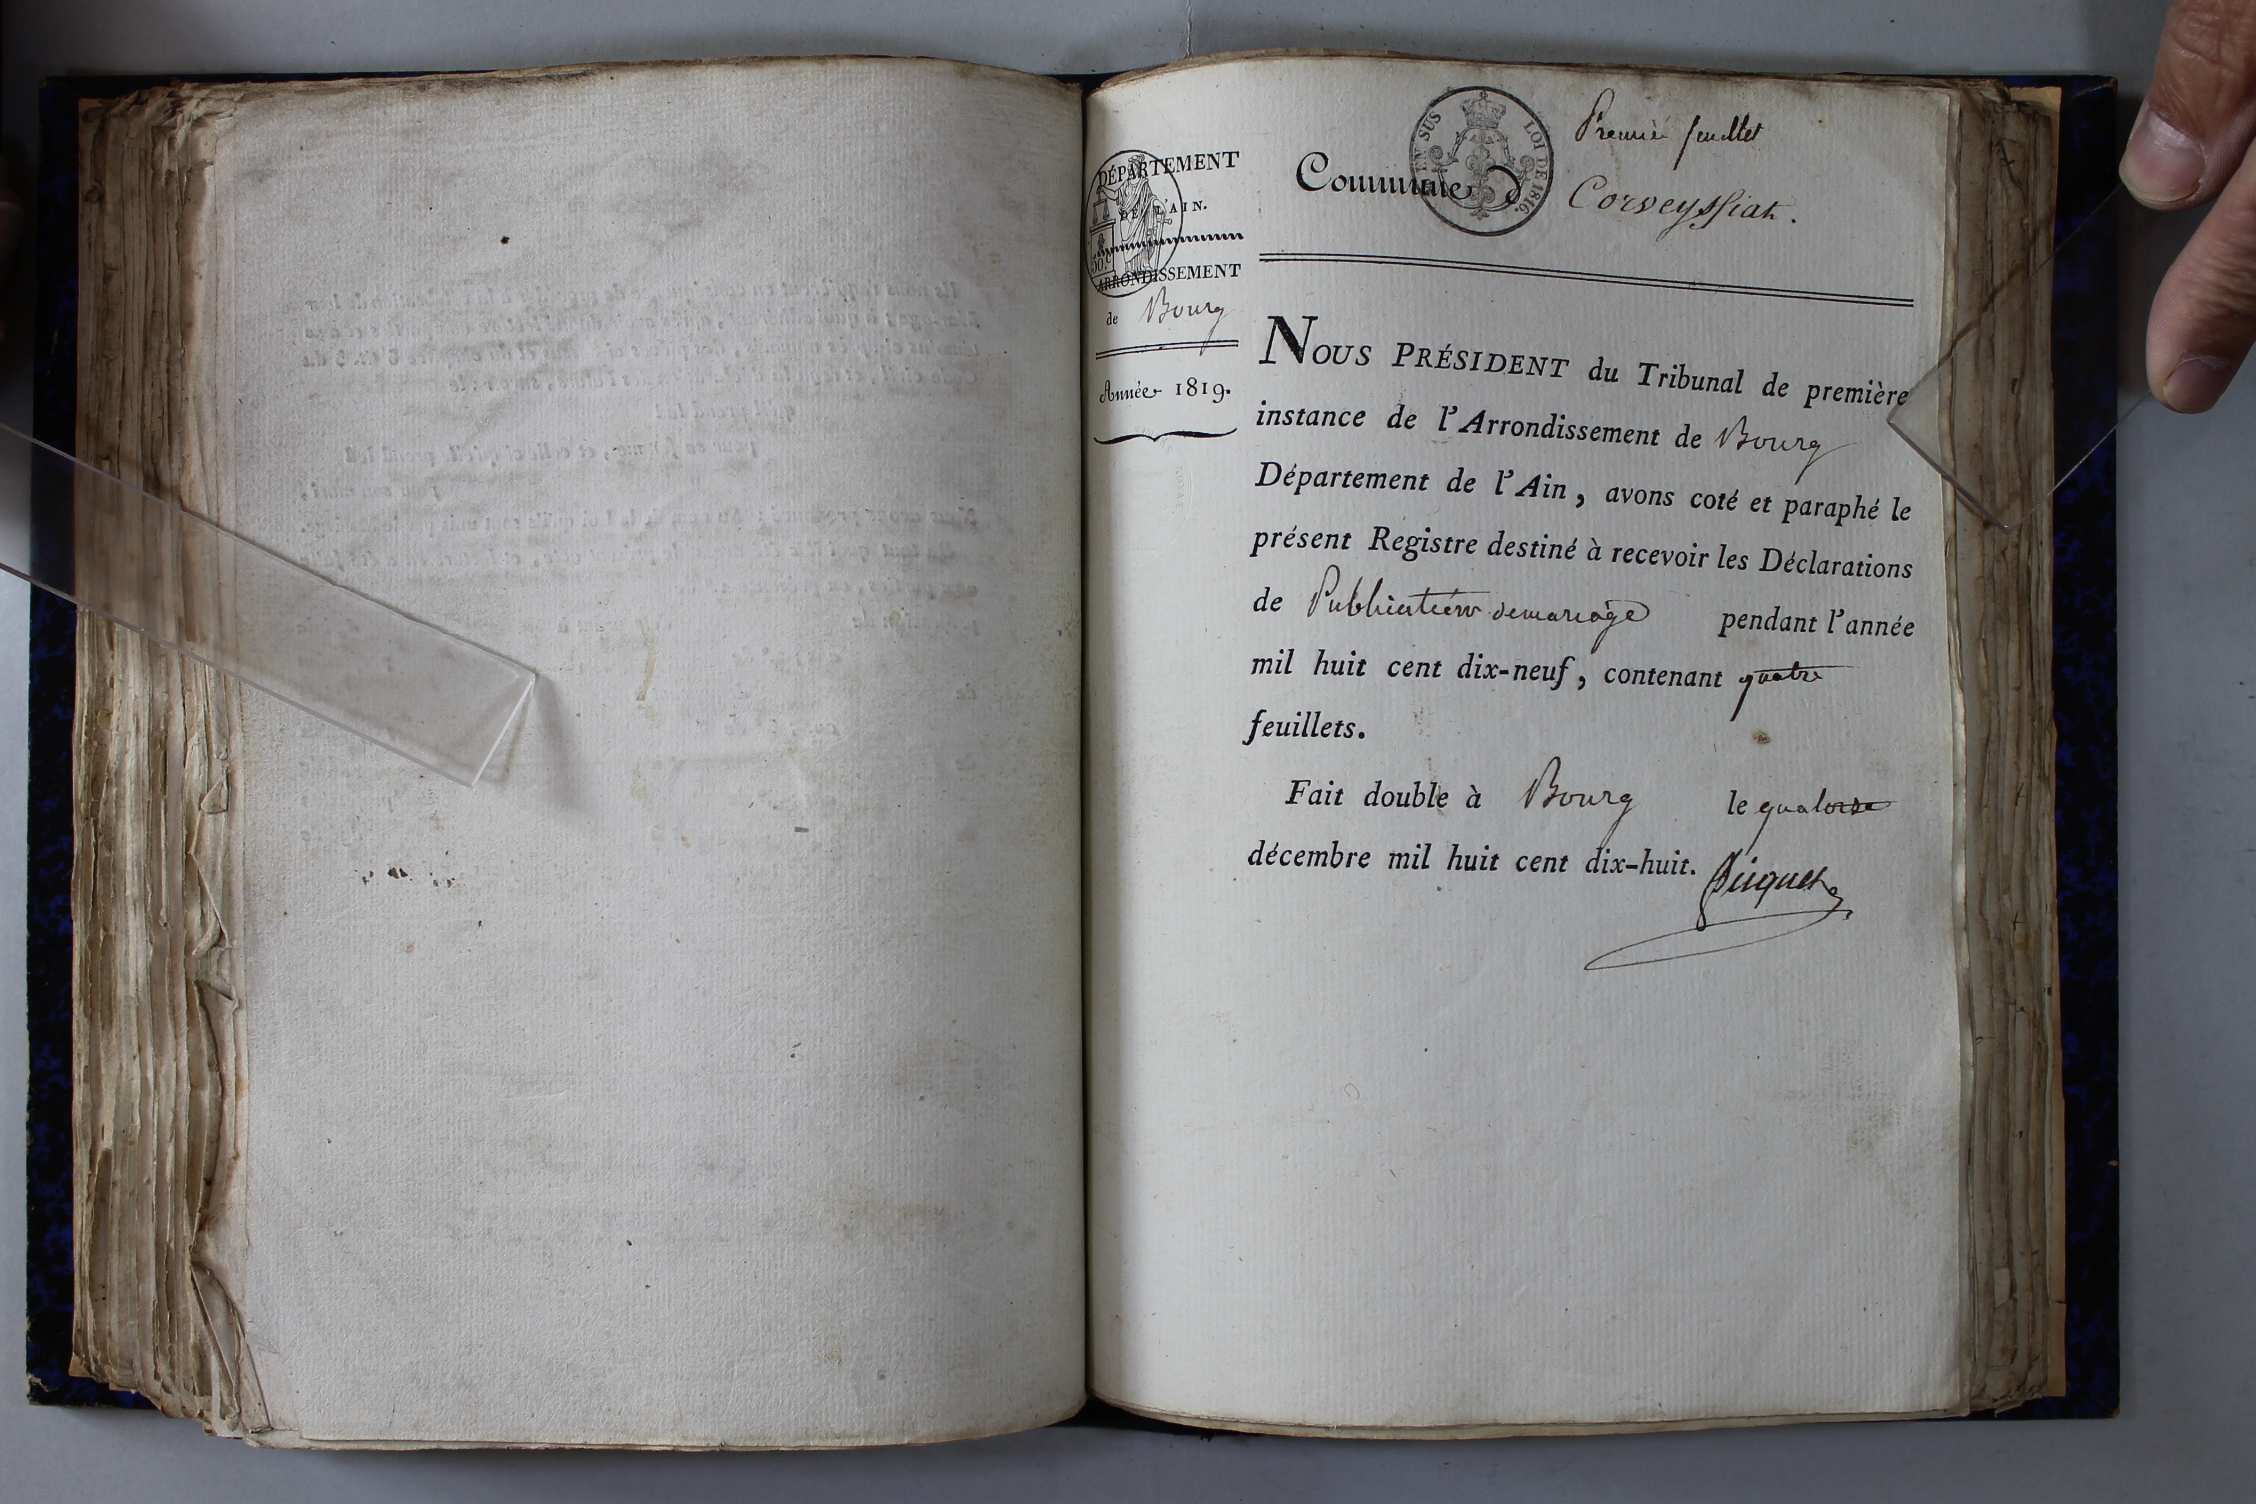 Premier feuillet
EN SUS LOI DE 1816.
Commune d Corveyssiat.
DÉPARTEMENT
DE L'AIN.
ARRONDISSEMENT
de Bourg
Année 1819.
NOUS PRÉSIDENT du Tribunal de première
instance de l'Arrondissement de Bourg
Département de l'Ain, avons coté et paraphé le
présent Registre destiné à recevoir les Déclarations
de Publication de mariage pendant l'année
mil huit cent dix-neuf, contenant quatre
feuillets.
Fait double à Bourg le quatorze
décembre mil huit cent dix-huit.